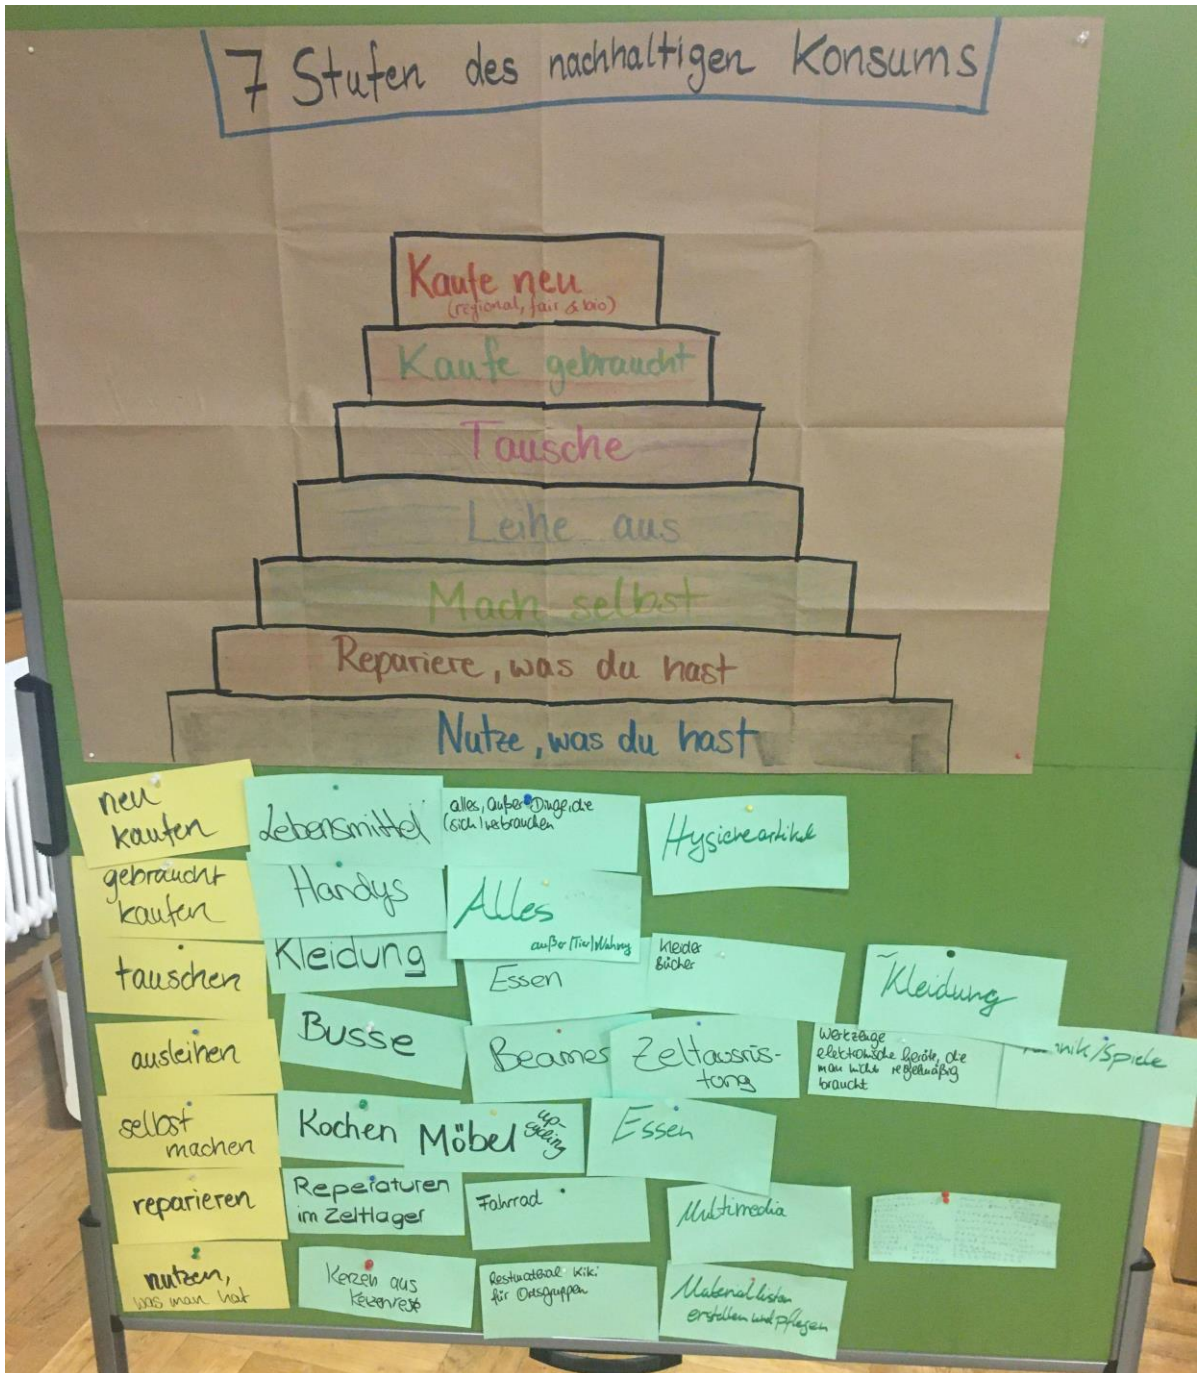 7 Stufen des nachhaltigen Konsums
Kaufe neu
(regional, fair & bio)
Kaufe gebraucht
Tausche
Leihe aus
Mach selbst
Repariere, was du hast
Nutze, was du hast
neu
kaufen
Lebensmittel
alles, außer Dinge, die
(sich) verbrauchen
Hygieneartikel
gebraucht
kaufen
Handys
Alles
außer (Tier)Nahrung
tauschen
Kleidung
Essen
Kleider
Bücher
Kleidung
ausleihen
Busse
Beamer
Zeltausrüs-
tung
Werkzeuge
elektronische Geräte, die
man nicht regelmäßig
braucht
/Spiele
selbst
machen
Kochen
Möbel
up-
cycling
Essen
reparieren
Reperaturen
im Zeltlager
Fahrrad
Multimedia
nutzen,
was man hat
Kerzen aus
Kerzenreste
Restmaterial Kiki
für Ortsgruppen
Materiallisten
erstellen und pflegen